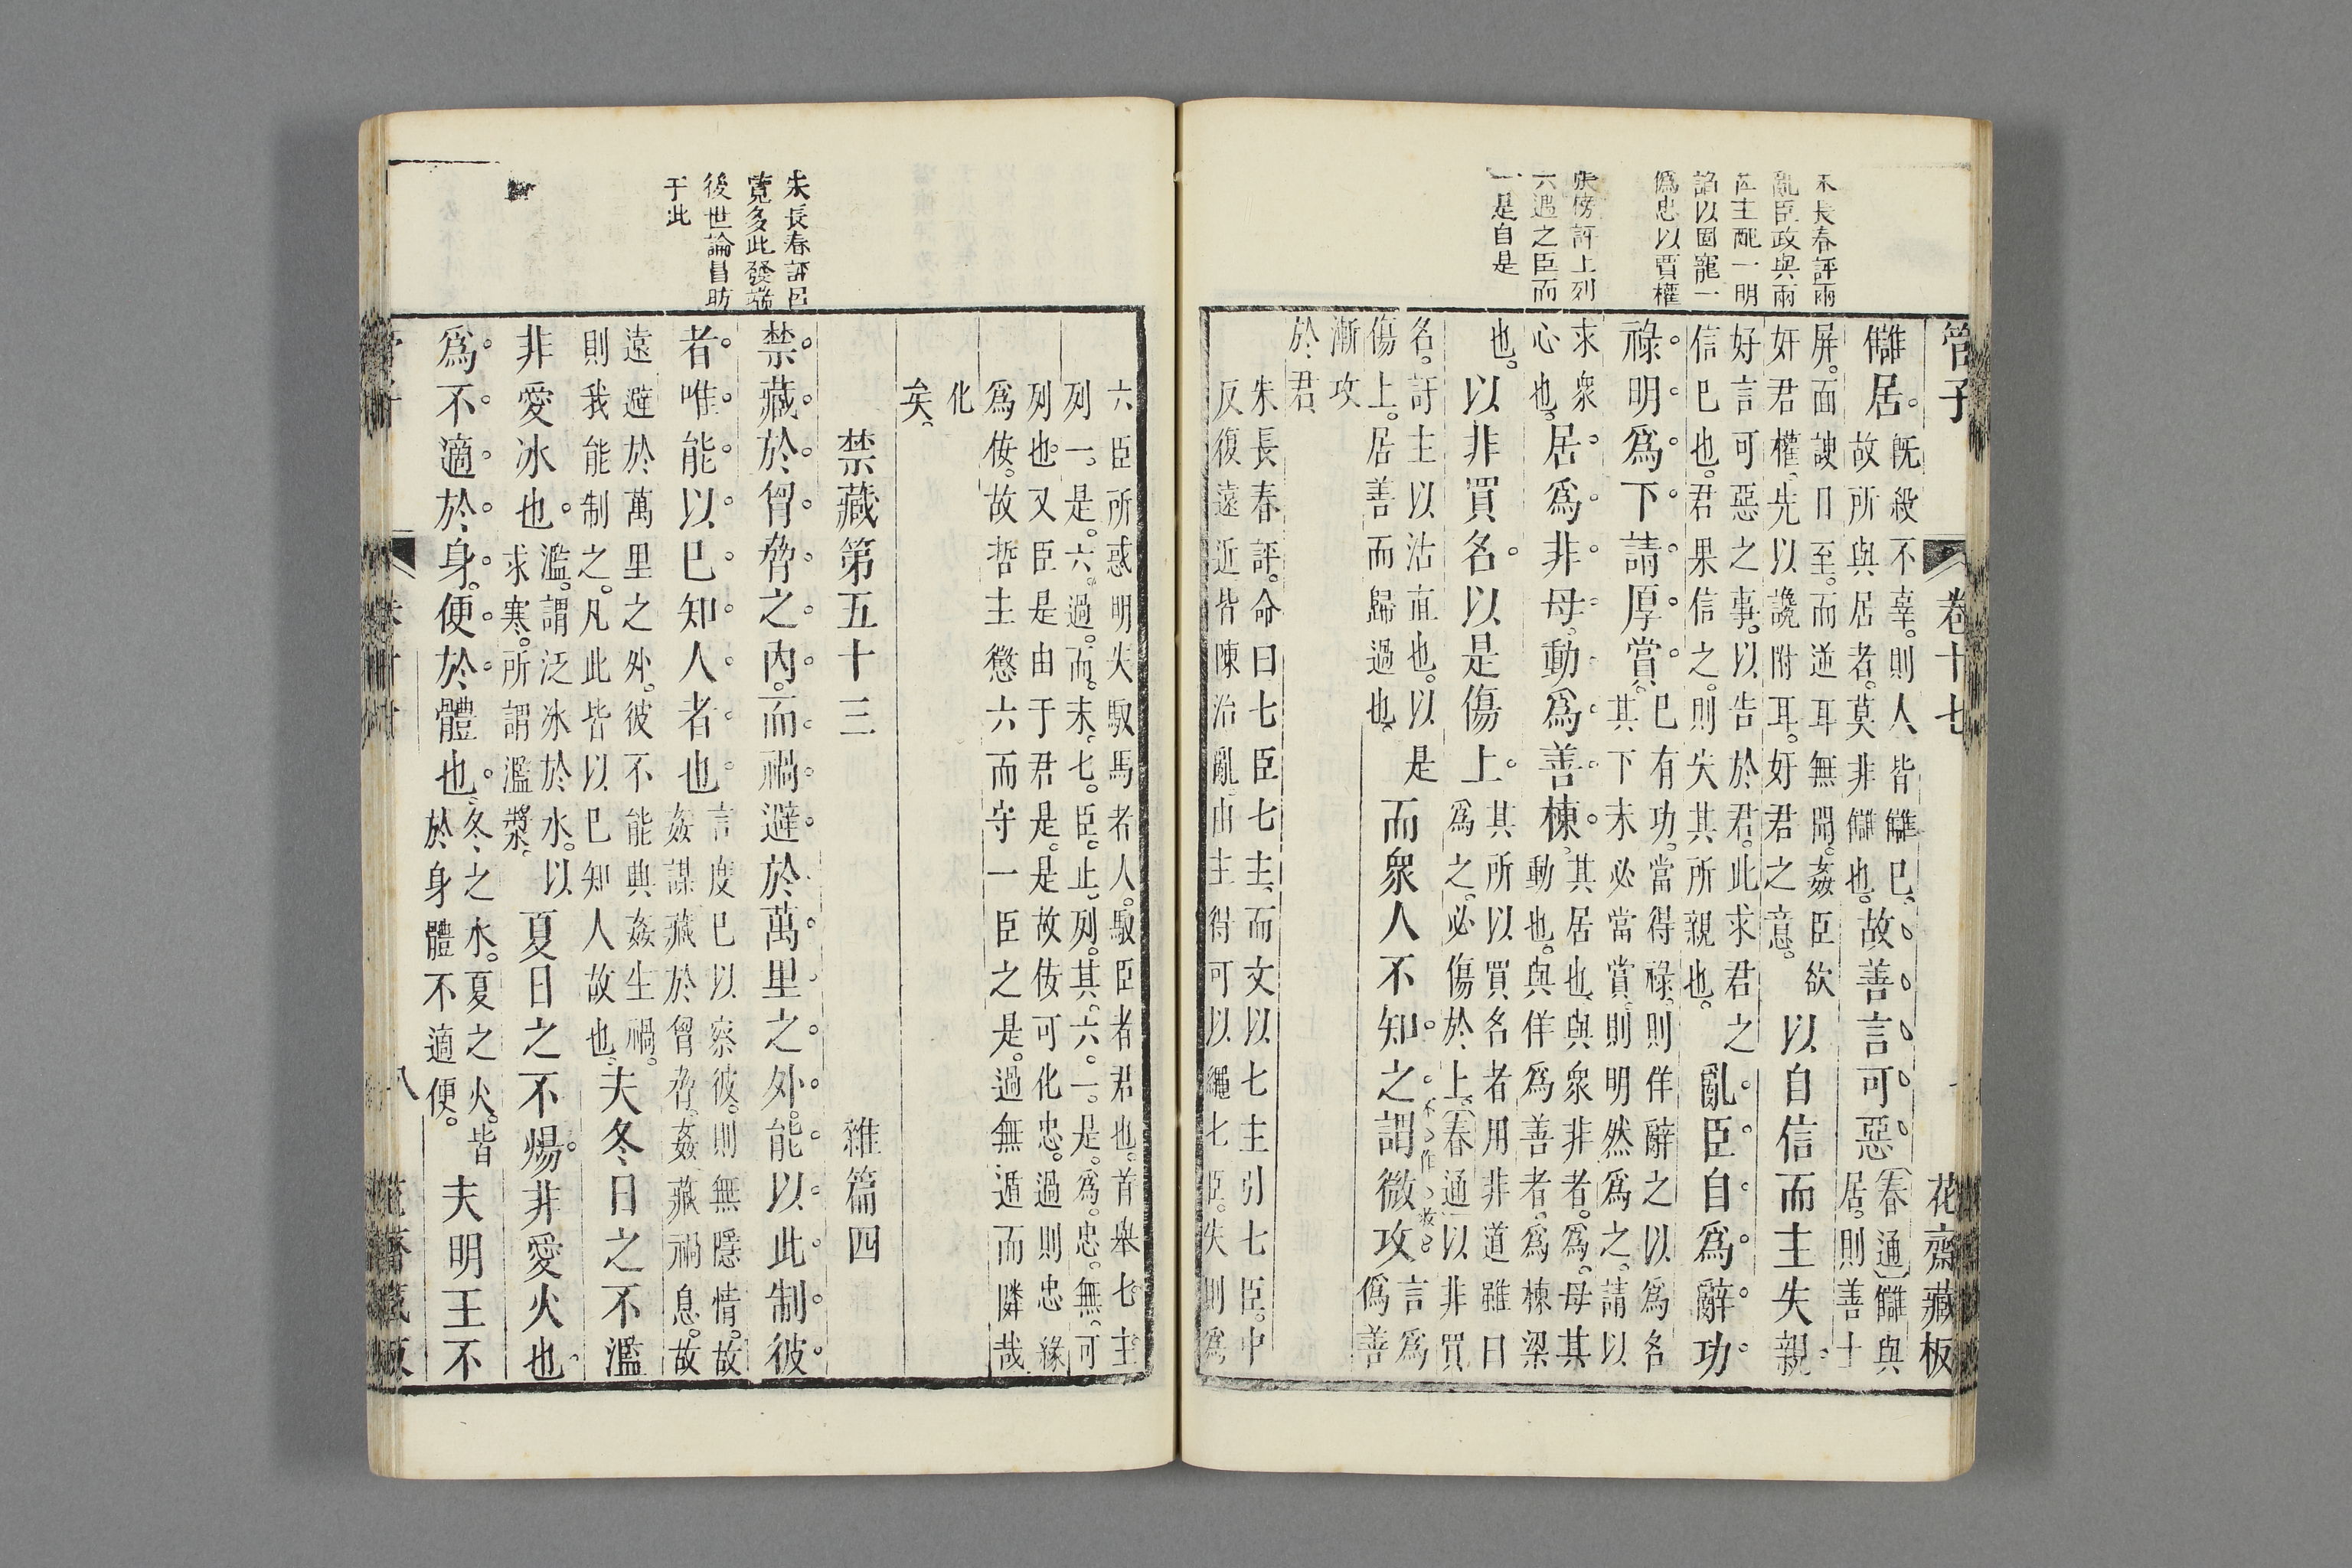 管子 卷十七 花齋藏板
朱長春評兩
亂臣政與兩
左主配一明
諂以固寵一
僞忠以賈權
張榜評上列
六過之臣而
一是自是
讎居。旣殺不辜。則人皆讎已、故所與居者。莫非讎也。故善言可惡。(春通)讎與居。則善士
屏。面諛日至。而逆耳無聞。姦臣欲奸君權、先以讒附耳。好君之意。以自信而主失親。
好言可惡之事。以告於君。此求君之信已也。君果信之。則失其所親也。亂臣自爲辭功
祿。明爲下請厚賞。已有功。當得祿。則佯辭之以爲名其下未必當賞。則明然爲之。請以
求衆心也。居爲非母。動爲善棟。其居也。與衆非者。爲母其動也。與佯爲善者。爲棟梁
也。以非買名。以是傷上。其所以買名者用非道雖日爲之。必傷於上。(春通)以非買
名。訐主以沽直也。以是傷上。居善而歸過也。而衆人不知之謂微攻言爲僞善
漸攻於君
朱長春評。命曰七臣七主、而文以七主引七臣。中
反復遠近皆陳治亂。由主得可以繩七臣。失則爲
六臣所惑明火馭馬者人。馭臣者君也。首舉七主
列一。是。六。過。而。末。七。臣。止。列。其。六。一。是。爲。忠。無。可
列也。又臣是由于君是。是故侫可化忠。過則忠緣
爲侫。故哲主懲六而守一臣之是。過無遁而隣哉
化
矣。
朱長春評呂
覽多此發端
後世論冒昉
于此
禁藏第五十三 雜篇四
禁藏於胷脅之內。而禍避於萬里之外。能以此制彼
者唯能以已知人者也言度已以察彼。則無隱情。故姦謀藏於胷脅。姦藏禍息。故
遠避於萬里之外。彼不能典姦生禍。則我能制之。凡此皆以已知人故也、夫冬日之不濫
非愛冰也。濫。謂泛冰於水。以求寒。所謂濫漿、夏日之不煬。非愛火也
爲不適於身。便於體也。冬之水。夏之火。皆於身體不適便。夫明王不